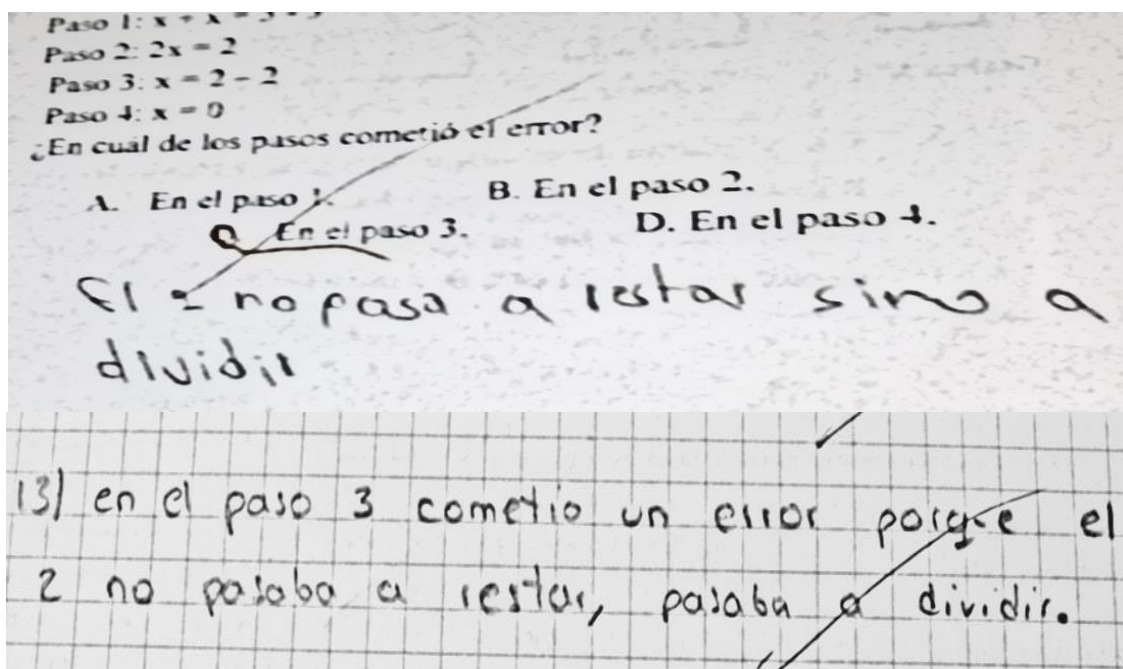 Paso 1: x + x =
Paso 2: 2x = 2
Paso 3: x = 2 - 2
Paso 4: x = 0
¿En cuál de los pasos cometió el error?
A. En el paso 1. B. En el paso 2.
En el paso 3. D. En el paso 4.
El 2 no pasa a restar sino a
dividir
13) en el paso 3 cometio un error porque el
2 no pasaba a restar, pasaba a dividir.